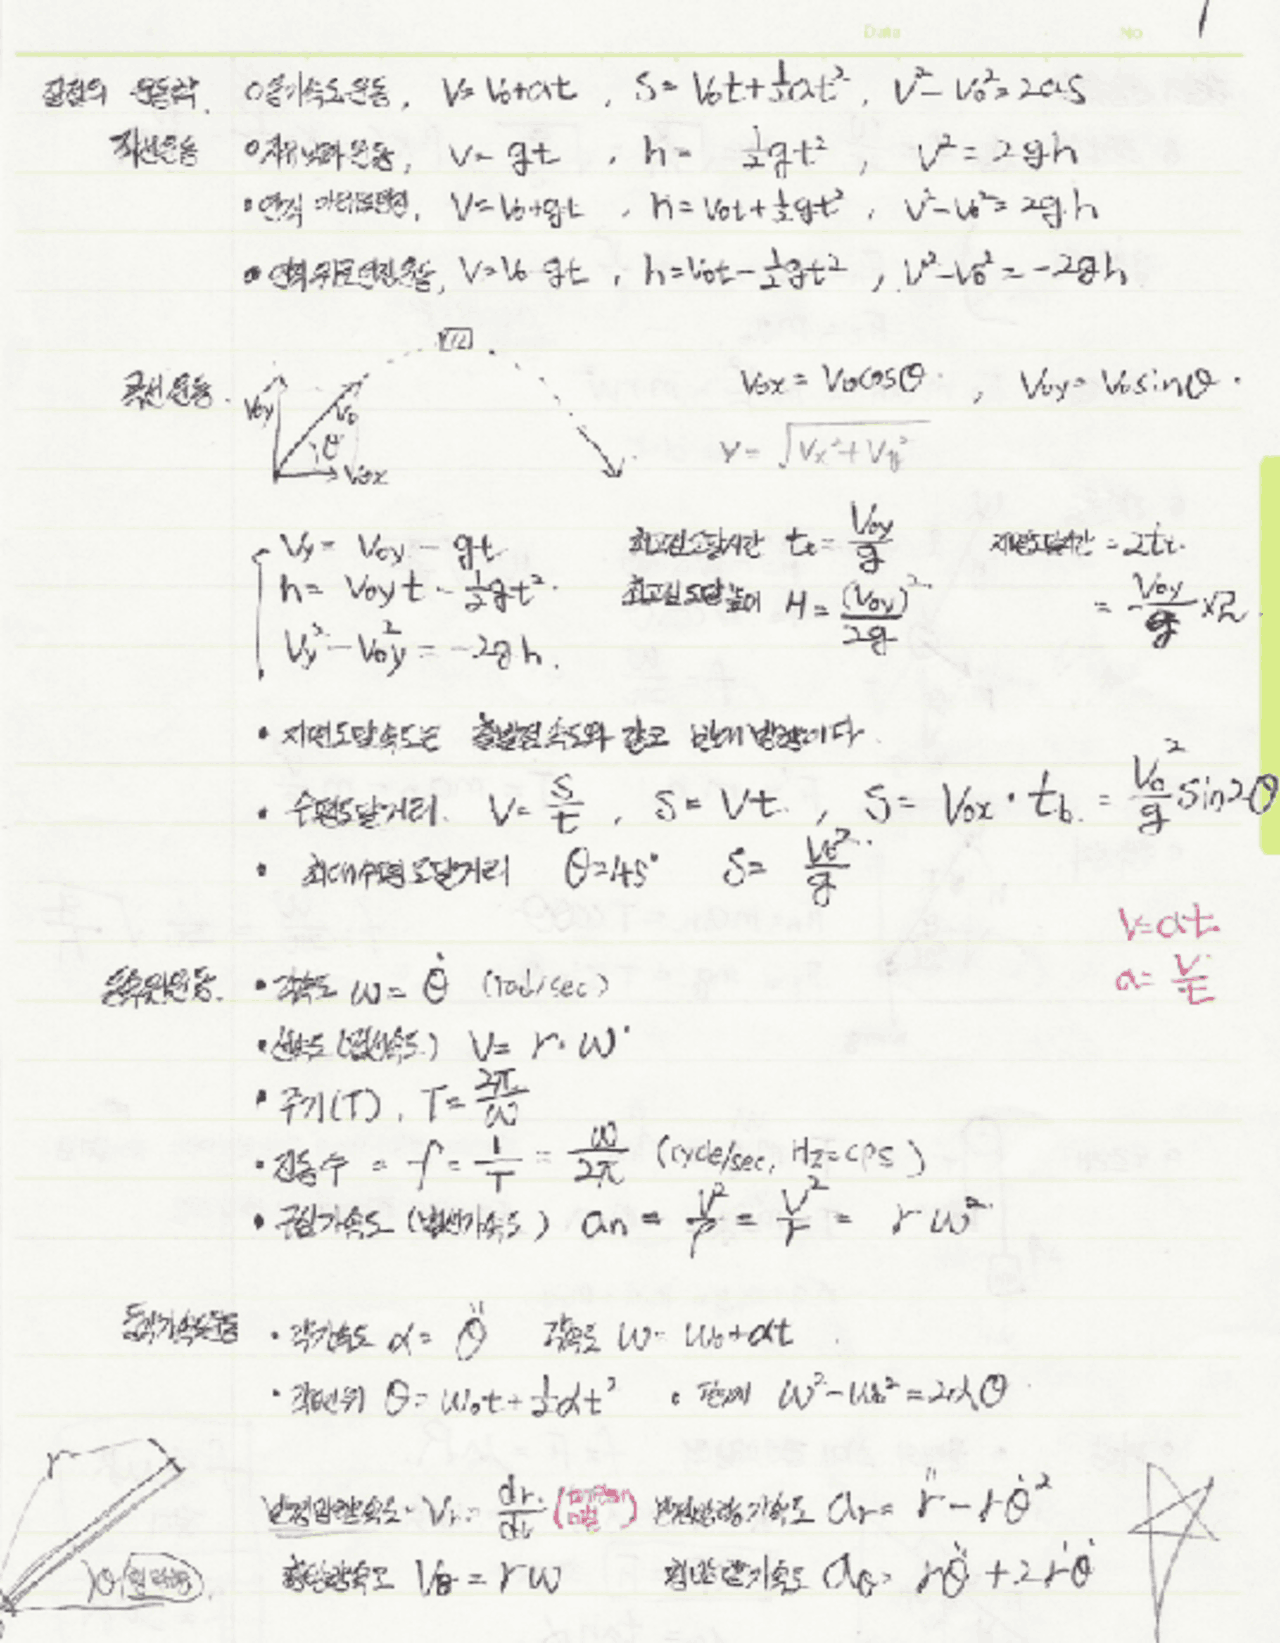 Date No 1
질점의 운동학. 등가속도운동, V= V₀+at , S= V₀t+½at², V²-V₀²=2aS
직선운동 자유낙하운동, V= gt , h= ½gt² , V²=2gh
• 연직 아래로던짐, V=V₀+gt , h=V₀t+½gt², V²-V₀²=2gh
• 연직위로던진운동, V=V₀ gt , h=V₀t-½gt² , V²-V₀²=-2gh
곡선운동. V₀y V₀ θ V₀x V₀x= V₀cosθ. , V₀y= V₀sinθ.
V= √(Vx²+Vy²)
Vy= V₀y - gt 최고점도달시간 t₁= V₀y/g 지면도달시간 = 2t₁.
h= V₀y t - ½gt². 최고점도달높이 H= (V₀y)²/2g = V₀y/g ×2.
Vy²-V₀y²= -2gh.
• 지면도달속도는 출발점속도와 같고 반대방향이다.
• 수평도달거리. V= S/t , S= Vt. , S= V₀x • t_b. = V₀²/g sin2θ
• 최대수평도달거리 θ=45° S= V₀²/g
V=at.
a= V/t
등속원운동. • 각속도 ω= θ̇ (rad/sec)
• 선속도(접선속도.) V= r•ω
• 주기(T), T= 2π/ω
• 진동수 = f= 1/T = ω/2π (cycle/sec, Hz=cps)
• 구심가속도 (법선가속도) an = V²/ρ = V²/r = rω²
등각가속도운동 • 각가속도 α= θ̈ 각속도 ω= ω₀+αt
• 각변위 θ= ω₀t+½αt² • 관계 ω²-ω₀²=2αθ
r 반경방향속도. Vr= dr/dt 반경방향가속도 ar= r̈ - rθ̇²
θ 횡방향속도 Vθ = rω 횡방향가속도 aθ= rθ̈ + 2ṙθ̇